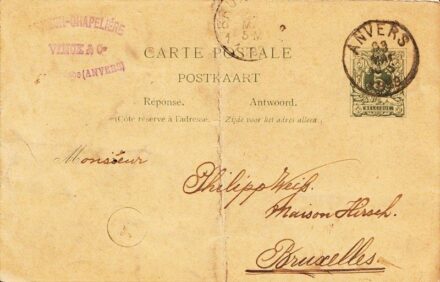 CHAPELIÈRE
VINCK & Cº
(ANVERS)
CARTE POSTALE
POSTKAART
Réponse. Antwoord.
(Côté réservé à l'adresse. Zijde voor het adres alleen.)
ANVERS
BELGIQUE
Monsieur
Philipp Weiß.
Maison Hersch.
Bruxelles.